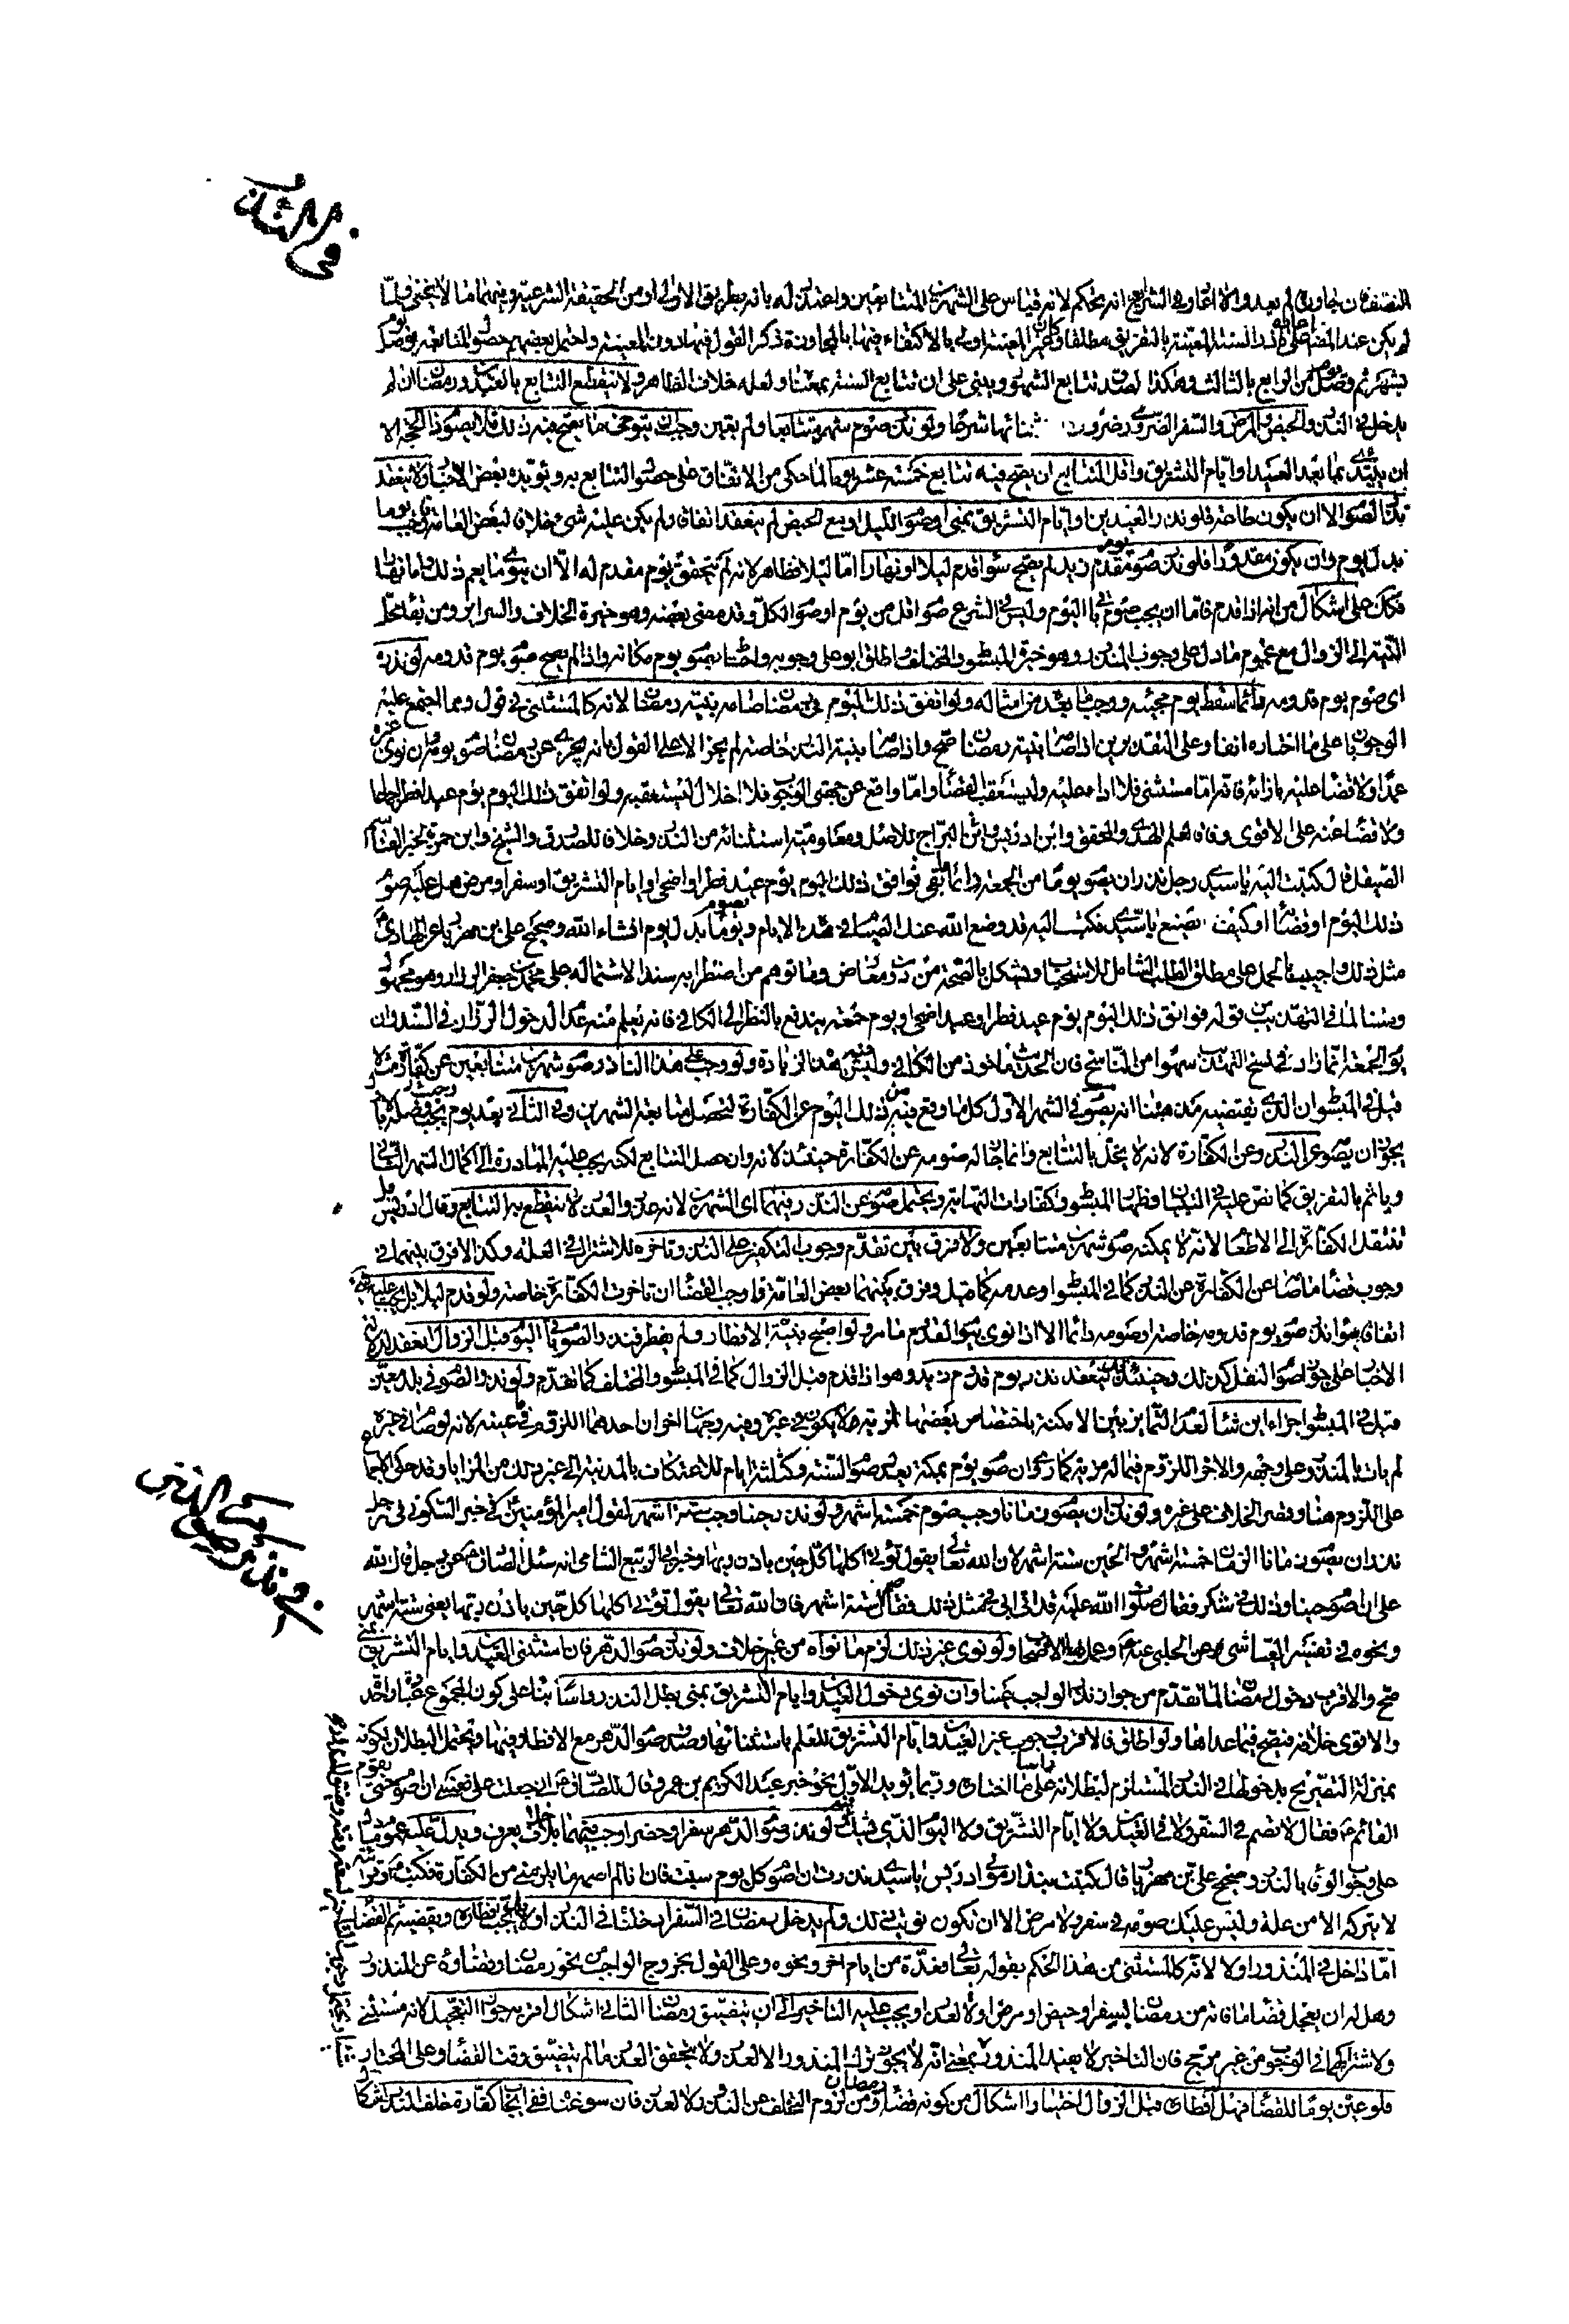 في النذر
النصف فان جاوزه لم يعد والا اعاد وفي الشرايع انه تحكم لانه قياس على الشهرين المتتابعين
لم يكن عند المضطر على هذا السنة المعينة بالتفريق مطلقا
بشهر ثم وصل من الرابع بالثالث وهكذا لصدق تتابع الشهور ويبنى على ان تتابع السنة بمعنى ولعله خلاف الظاهر ولا ينقطع التتابع بالعيد ورمضان ان لم
يدخل في النذر والحيض والمرض والسفر الضروري ولو نذر صوم شهر متتابعا ولم يعين وجب ان يتوخى ما يصح فيه ذلك فلا يصوم ذا الحجة الا
ان يبتدئ بما بعد العيد او ايام التشريق واقل التتابع ان يصح فيه تتابع خمسة عشر يوما لما حكي من الاتفاق على حصول التتابع به ويؤيده بعض الاخبار ولا ينعقد
نذر الصوم الا ان يكون طاعة فلو نذر العيدين او ايام التشريق بمنى او صوم الليل او مع الحيض لم ينعقد اتفاقا ولم يكن عليه شئ خلافا لبعض العامة فاوجب يوما
بدل يوم وان يكون مقدورا فلو نذر صوم يوم مقدم زيد لم يصح سواء قدم ليلا او نهارا اما ليلا فظاهر لانه لم يتحقق يوم مقدم له الا ان ينوي ما يعم ذلك واما نهارا
فكك على اشكال من انه اذا قدم فاما ان يجب صوم باقي اليوم وليس في الشرع صوم اقل من يوم او صوم الكل وقد مضى بعضه وهو خيرة الخلاف والسرائر ومن بقاء محل
النية الى الزوال مع عموم ما دل على وجوب المنذور وهو خيرة المبسوط والمختلف واطلق ابو علي وجوبه واحتاط بصوم يوم مكانه واذا لم يصح صوم يوم قدومه لو نذره
اي صوم يوم قدومه دائما سقط يوم مجيئه ووجب ما بعده من امثاله ولو اتفق ذلك اليوم في رمضان صامه بنية رمضان لانه كالمستثنى في قول ومما اجتمع عليه
الوجوبان على ما اختاره انفا وعلى التقديرين اذا صام بنية رمضان صح واذا صام بنية النذر خاصة لم يجز الا على القول بانه يجزي عن رمضان صوم يوم وان نوى غيره
عمدا ولا قضاء عليه بازائه فانه اما مستثنى فلا اداء عليه وليستعقب القضاء واما واقع عن جهتي الوجوب فلا اخلال ليستعقبه ولو اتفق ذلك اليوم يوم عيد افطر اجماعا
ولا قضاء عنه على الاقوى وفاقا لعلم الهدى والمحقق وابن ادريس وابن البراج للاصل ومعلومية استثنائه من النذر وخلافا للصدوق والشيخ وابن حمزة لخبر القاسم
الصيقل قال كتبت اليه يا سيدي رجل نذر ان يصوم يوما من الجمعة دائما ما بقي فوافق ذلك اليوم يوم عيد فطر او اضحى او ايام التشريق او سفر او مرض هل عليه صوم
ذلك اليوم او قضاؤه او كيف يصنع يا سيدي فكتب اليه قد وضع الله عنك الصيام في هذه الايام ويصوم يوما بدل يوم انشاء الله وصحيح علي بن مهزيار عن الهادي ع
مثل ذلك واجيب بالحمل على مطلق الطلب الشامل للاستحباب وما توهم من اضطرابه سندا لاشتماله على محمد بن جعفر الرزاز وهو مجهول
ومتنا لما في التهذيب من قوله فوافق ذلك اليوم يوم عيد فطر او عيد اضحى او يوم جمعة يندفع بالنظر الى الكافي فانه يعلم منه عدم دخول الرزاز في السند وان
يوم الجمعة انما زاد في نسخ التهذيب سهوا من النساخ فان الحديث ماخوذ من الكافي وليس فيه هذه الزيادة ولو وجب على هذا الناذر صوم شهرين متتابعين عن كفارة مثلا
قيل في المبسوط ان الذي يقتضيه مذهبنا انه يصوم في الشهر الاول كل ما وقع فيه من ذلك اليوم عن الكفارة لتحصل متابعة الشهرين وفي الثاني بعد يوم
يجوز ان يصوم عن النذر وعن الكفارة لانه لا يخل بالتتابع وانما جاز له صومه عن الكفارة حينئذ لانه وان حصل التتابع لكنه يجب عليه المبادرة الى اكمال الشهر الثاني
وياثم بالتفريق كما نص عليه في التبيان وظهار المبسوط وكفارات النهاية ويحتمل صومه عن النذر فيهما اي الشهرين لانه عذر والعذر لا ينقطع به التتابع وقال ابن ادريس بل
تنتقل الكفارة الى الاطعام لانه لا يمكنه صوم شهرين متتابعين ولا فرق بين تقدم وجوب التكفير على النذر وتاخره للاشتراك في العلة وكذا لا فرق بينهما في
وجوب قضاء ما صام عن الكفارة عن النذر كما في المبسوط وعدمه كما قيل وفرق بينهما بعض العامة فاوجب القضاء ان تاخرت الكفارة خاصة ولو قدم ليلا لم يجب عليه شئ
اتفاقا سواء نذر صوم يوم قدومه خاصة او صومه دائما الا اذا نوى بيوم القدوم ما مر ولو اصبح بنية الافطار ولم يفطر فنذر الصوم باقي اليوم قبل الزوال انعقد لدلالة
الاخبار على جواز صوم النفل كذلك وحينئذ ينعقد نذر يوم قدوم زيد وهو اذا قدم قبل الزوال كما في المبسوط والمختلف كما تقدم ولو نذر الصوم في بلد معين
قيل في المبسوط اجزاء اين شاء لعدم التمايز بين الامكنة باختصاص بعضها بمزية لا يكون في غيره وفيه وجهان اخران احدهما اللزوم فيما عينه لانه لو صام في غيره
لم يات بالمنذور على وجهه والاخر اللزوم فيما له مزية كما روي ان صوم يوم بمكة يعدل صوم السنة وكثلثة ايام للاعتكاف بالمدينة الى غير ذلك من المزايا وقد حكي الاجماع
على اللزوم هنا وقصر الخلاف على غيره ولو نذر ان يصوم زمانا وجب صوم خمسة اشهر ولو نذر حينا وجب ستة اشهر لقول امير المؤمنين ع في خبر السكوني في رجل
نذر ان يصوم زمانا الزمان خمسة اشهر والحين ستة اشهر لان الله تعالى يقول تؤتي اكلها كل حين باذن ربها وخبر ابي الربيع الشامي انه سئل الصادق ع عن رجل قال لله
علي ان اصوم حينا وذلك في شكر فقال صلوات الله عليه قد اتي ابي في مثل ذلك فقال صم ستة اشهر فان الله تعالى يقول تؤتي اكلها كل حين باذن ربها يعني ستة اشهر
ونحوه في تفسير العياشي عن الحلبي عنه ع وعمل بها الاصحاب ولو نوى غير ذلك لزم ما نواه من غير خلاف ولو نذر صوم الدهر فان استثنى العيدين وايام التشريق بمنى
صح والاقرب دخول رمضان لما تقدم من جواز نذر الواجب عندنا وان نوى دخول العيدين وايام التشريق بمنى بطل النذر راسا بناء على كون المجموع عبادة واحدة
والاقوى خلافه فيصح فيما عداها ولو اطلق فالاقرب وجوب غير العيدين وايام التشريق للعلم باستثنائها وصدق صوم الدهر مع الافطار فيها ويحتمل البطلان لكونه
بمنزلة التصريح بدخولها في النذر المستلزم لبطلانه راسا على ما اختاره وربما يؤيد الاول نحو خبر عبد الكريم بن عمرو قال للصادق ع اني جعلت على نفسي ان اصوم حتى يقوم
القائم ع فقال لا تصم في السفر ولا في العيدين ولا ايام التشريق ولا اليوم الذي يشك فيه ولو نذر صوم الدهر سفرا وحضرا وجب فيهما بلا خلاف يعرف ويدل عليه عموم ما دل
على وجوب الوفاء بالنذر وصحيح علي بن مهزيار قال كتب بندار مولى ادريس يا سيدي نذرت ان اصوم كل يوم سبت فان انا لم اصمه ما يلزمني من الكفارة فكتب ع وقرأته
لا تتركه الا من علة وليس عليك صومه في سفر ولا مرض الا ان تكون نويت ذلك ولم يدخل رمضان في السفر ان دخلنا في النذر اولا بل يجب افطاره ويقضيه ثم القضاء
اما داخل في المنذور او لا لانه كالمستثنى من هذا الحكم بقوله تعالى فعدة من ايام اخر ونحوه وعلى القول بخروج الواجب من نحو رمضان وقضاؤه عن المنذور
وهل له ان يعجل قضاء ما فاته من رمضان لسفر او حيض او مرض او لا لعذر او يجب عليه التاخير الى ان يتضيق رمضان الثاني اشكال اقربه جواز التعجيل لانه مستثنى
ولاشتراكهما في الوجوب من غير مرجح فان التاخير لا يفيد المنذور بمعنى انه لا يجوز ترك المنذور الا لعذر ولا يتحقق العذر ما لم يتضيق وقت القضاء وعلى المختار
فلو عين يوما للقضاء فهل له افطاره قبل الزوال اختيارا اشكال من كونه قضاء رمضان ومن لزوم التخلف عن النذر لا لعذر فان سوغناه ففي ايجاب كفارة خلف النذر اشكال